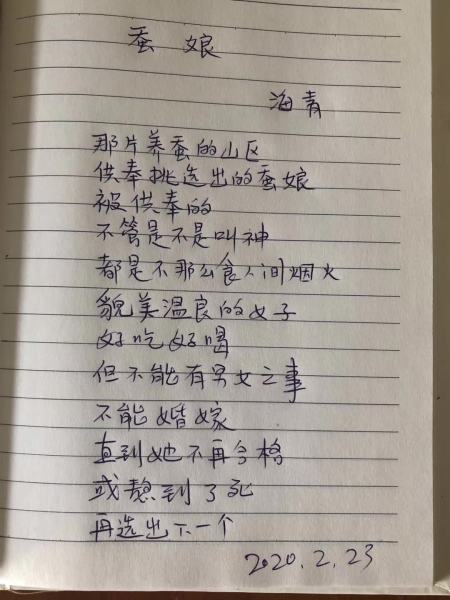 蚕娘
海青
那片养蚕的山区
供奉挑选出的蚕娘
被供奉的
不管是不是叫神
都是不那么食人间烟火
貌美温良的女子
好吃好喝
但不能有男女之事
不能婚嫁
直到她不再合格
或熬到了死
再选出下一个
2020.2.23